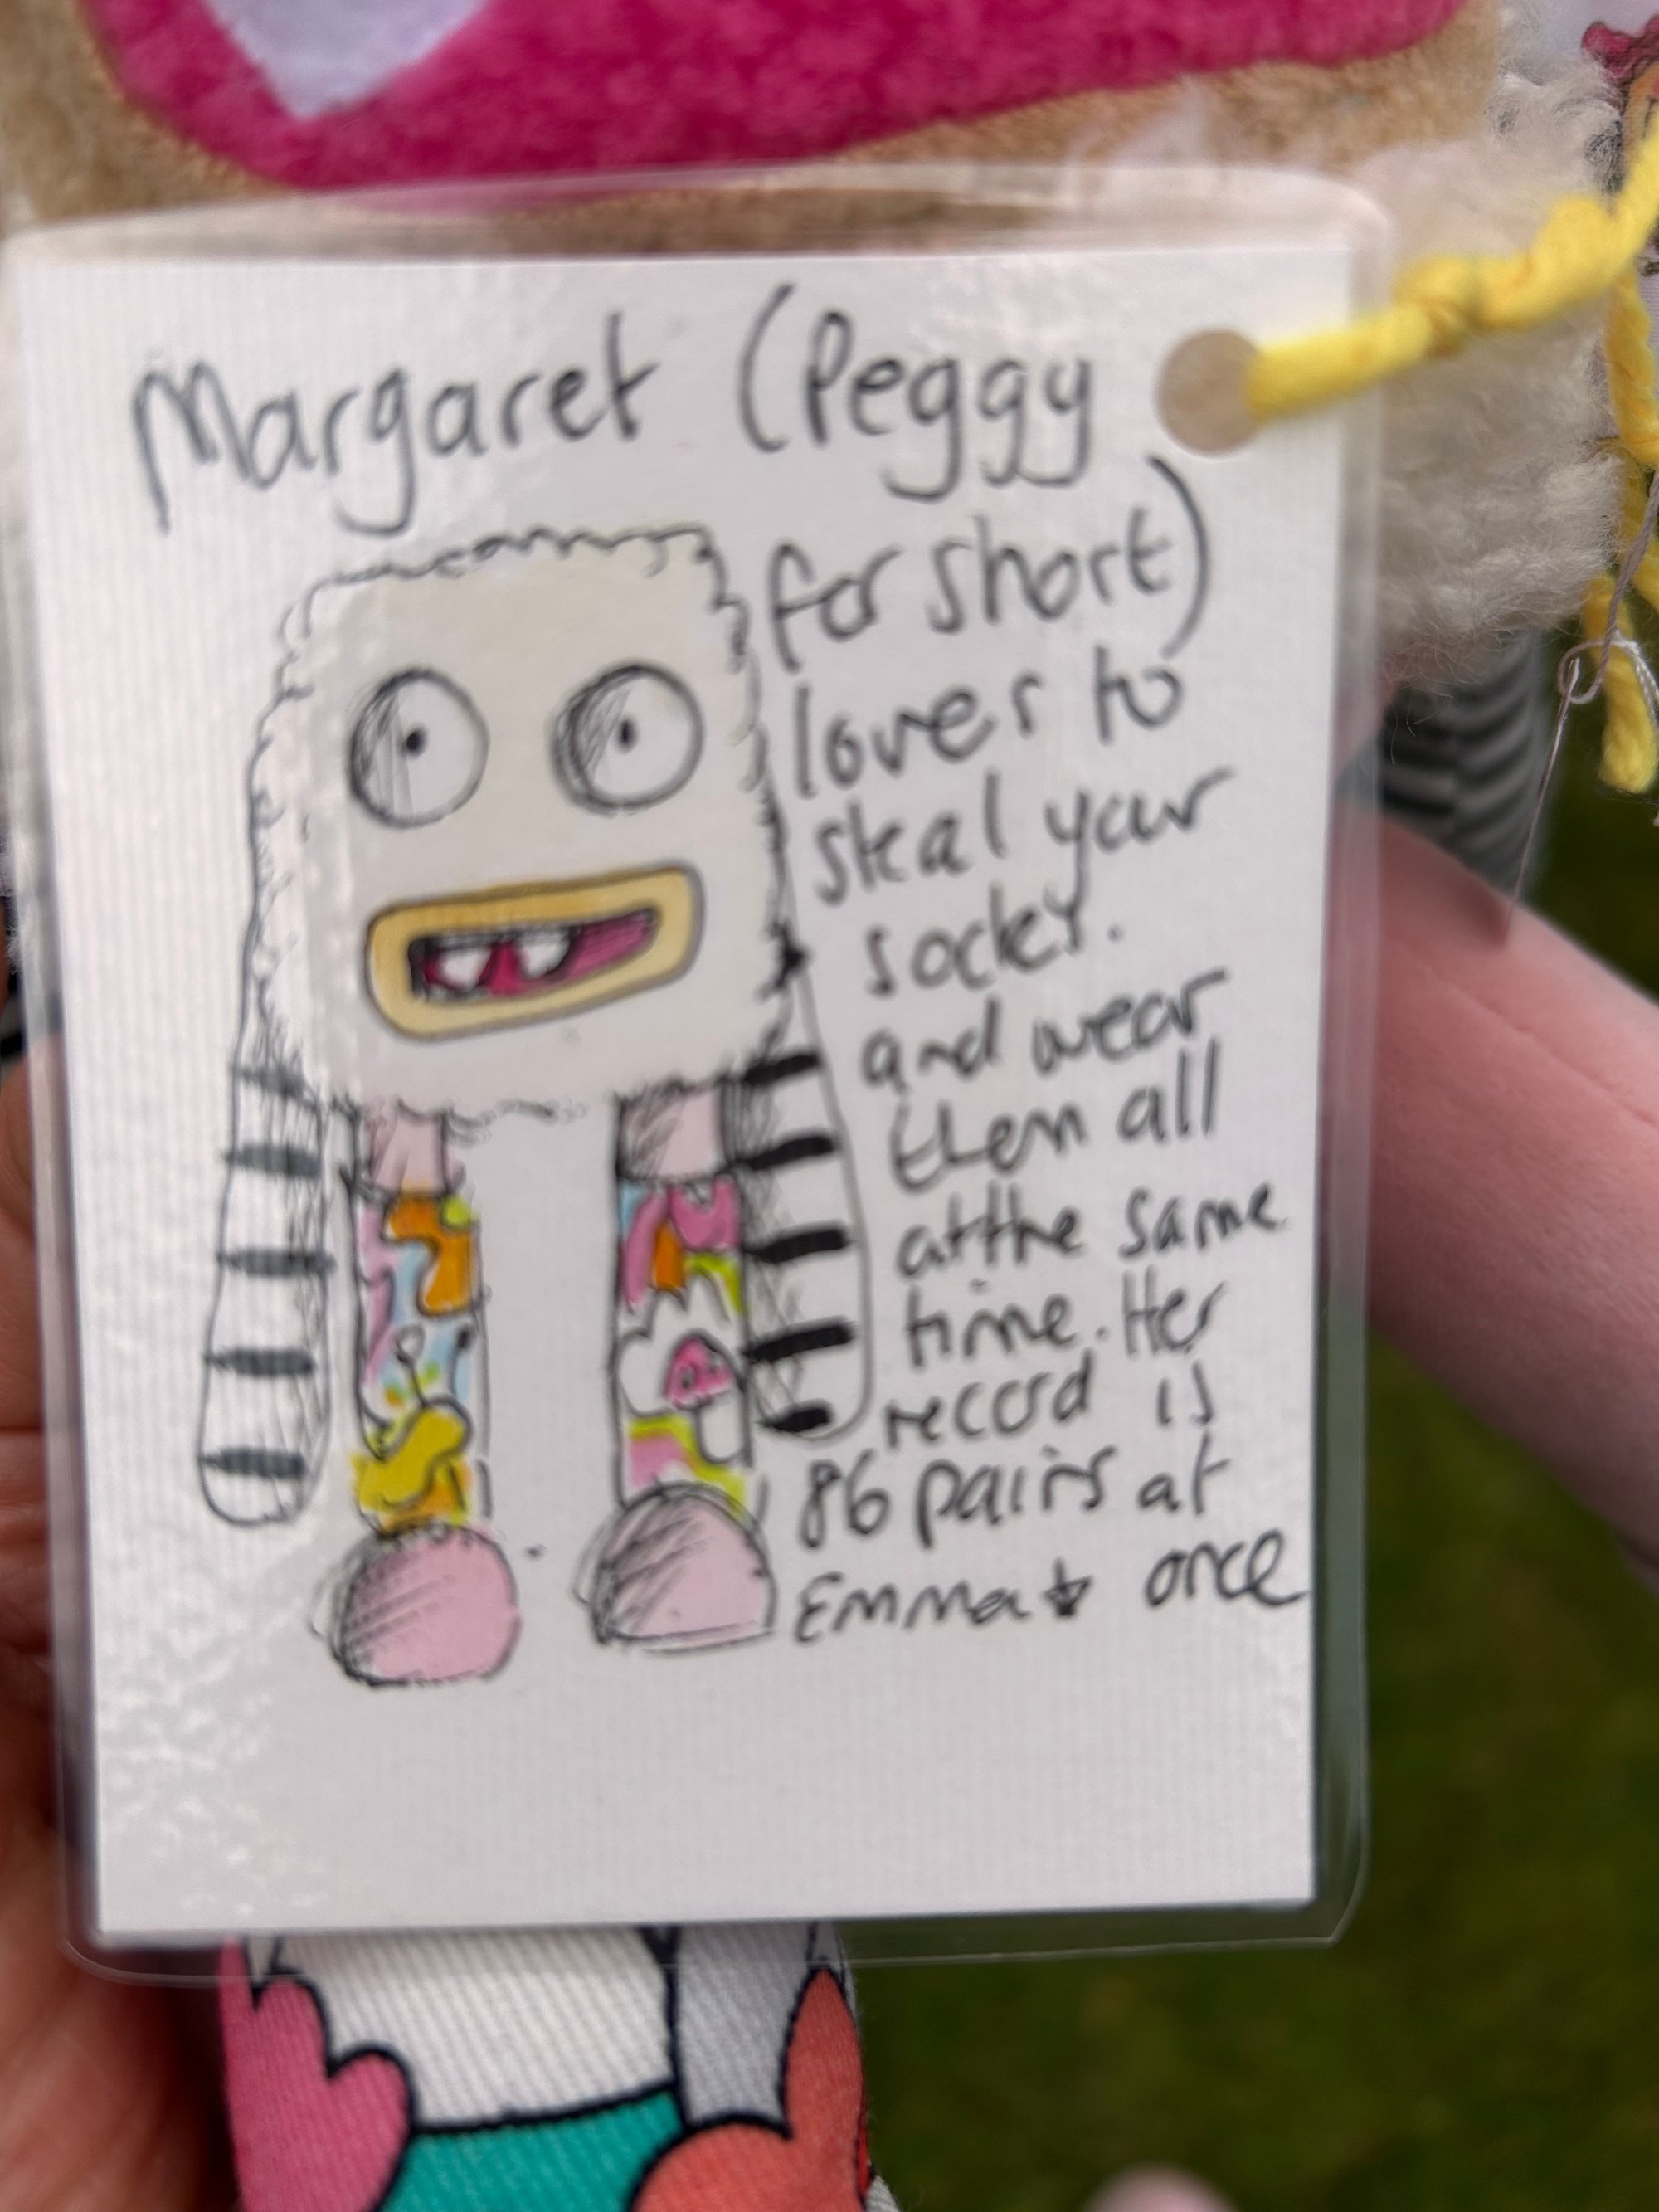 Margaret (Peggy
for short)
loves to
steal your
socks.
and wear
them all
at the same
time. Her
record is
86 pairs at
once
Emma